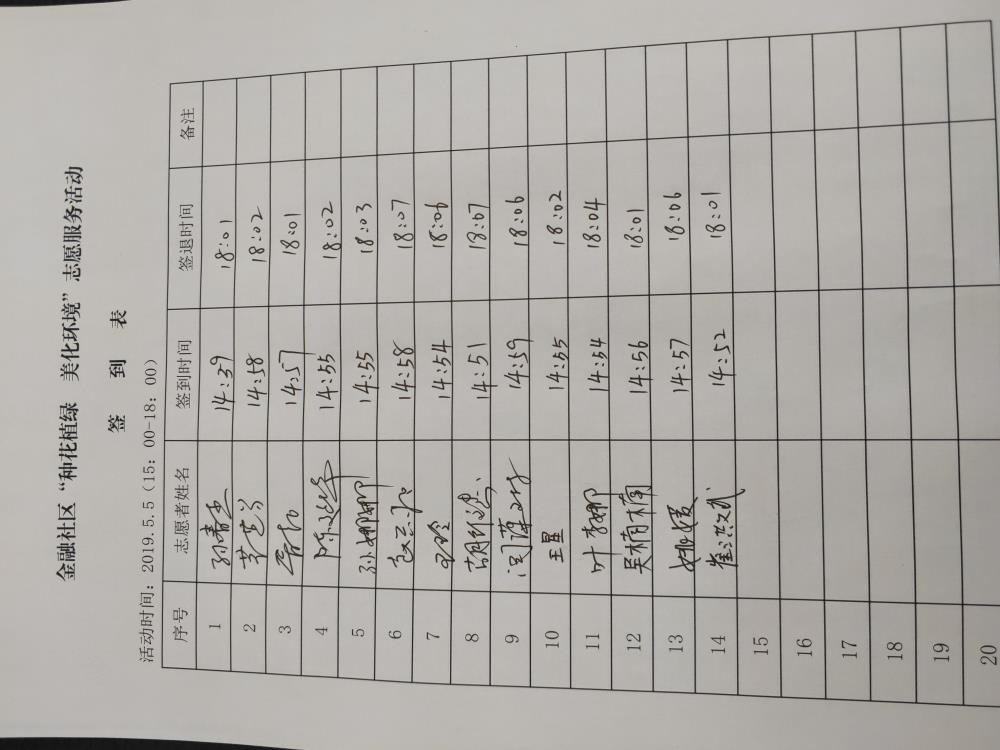 金融社区“种花植绿 美化环境”志愿服务活动
签 到 表
活动时间：2019.5.5（15：00-18：00）
序号 志愿者姓名 签到时间 签退时间 备注
1 孙春玉 14:39 18:01
2 14:58 18:02
3 14:57 18:01
4 14:55 18:02
5 孙娜娜 14:55 18:03
6 14:58 18:07
7 14:54 18:06
8 胡 14:51 18:07
9 闫萍 14:59 18:06
10 王星 14:55 18:02
11 叶李娜 14:54 18:04
12 吴楠楠 14:56 18:01
13 姚媛 14:57 18:06
14 崔洪武 14:52 18:01
15
16
17
18
19
20